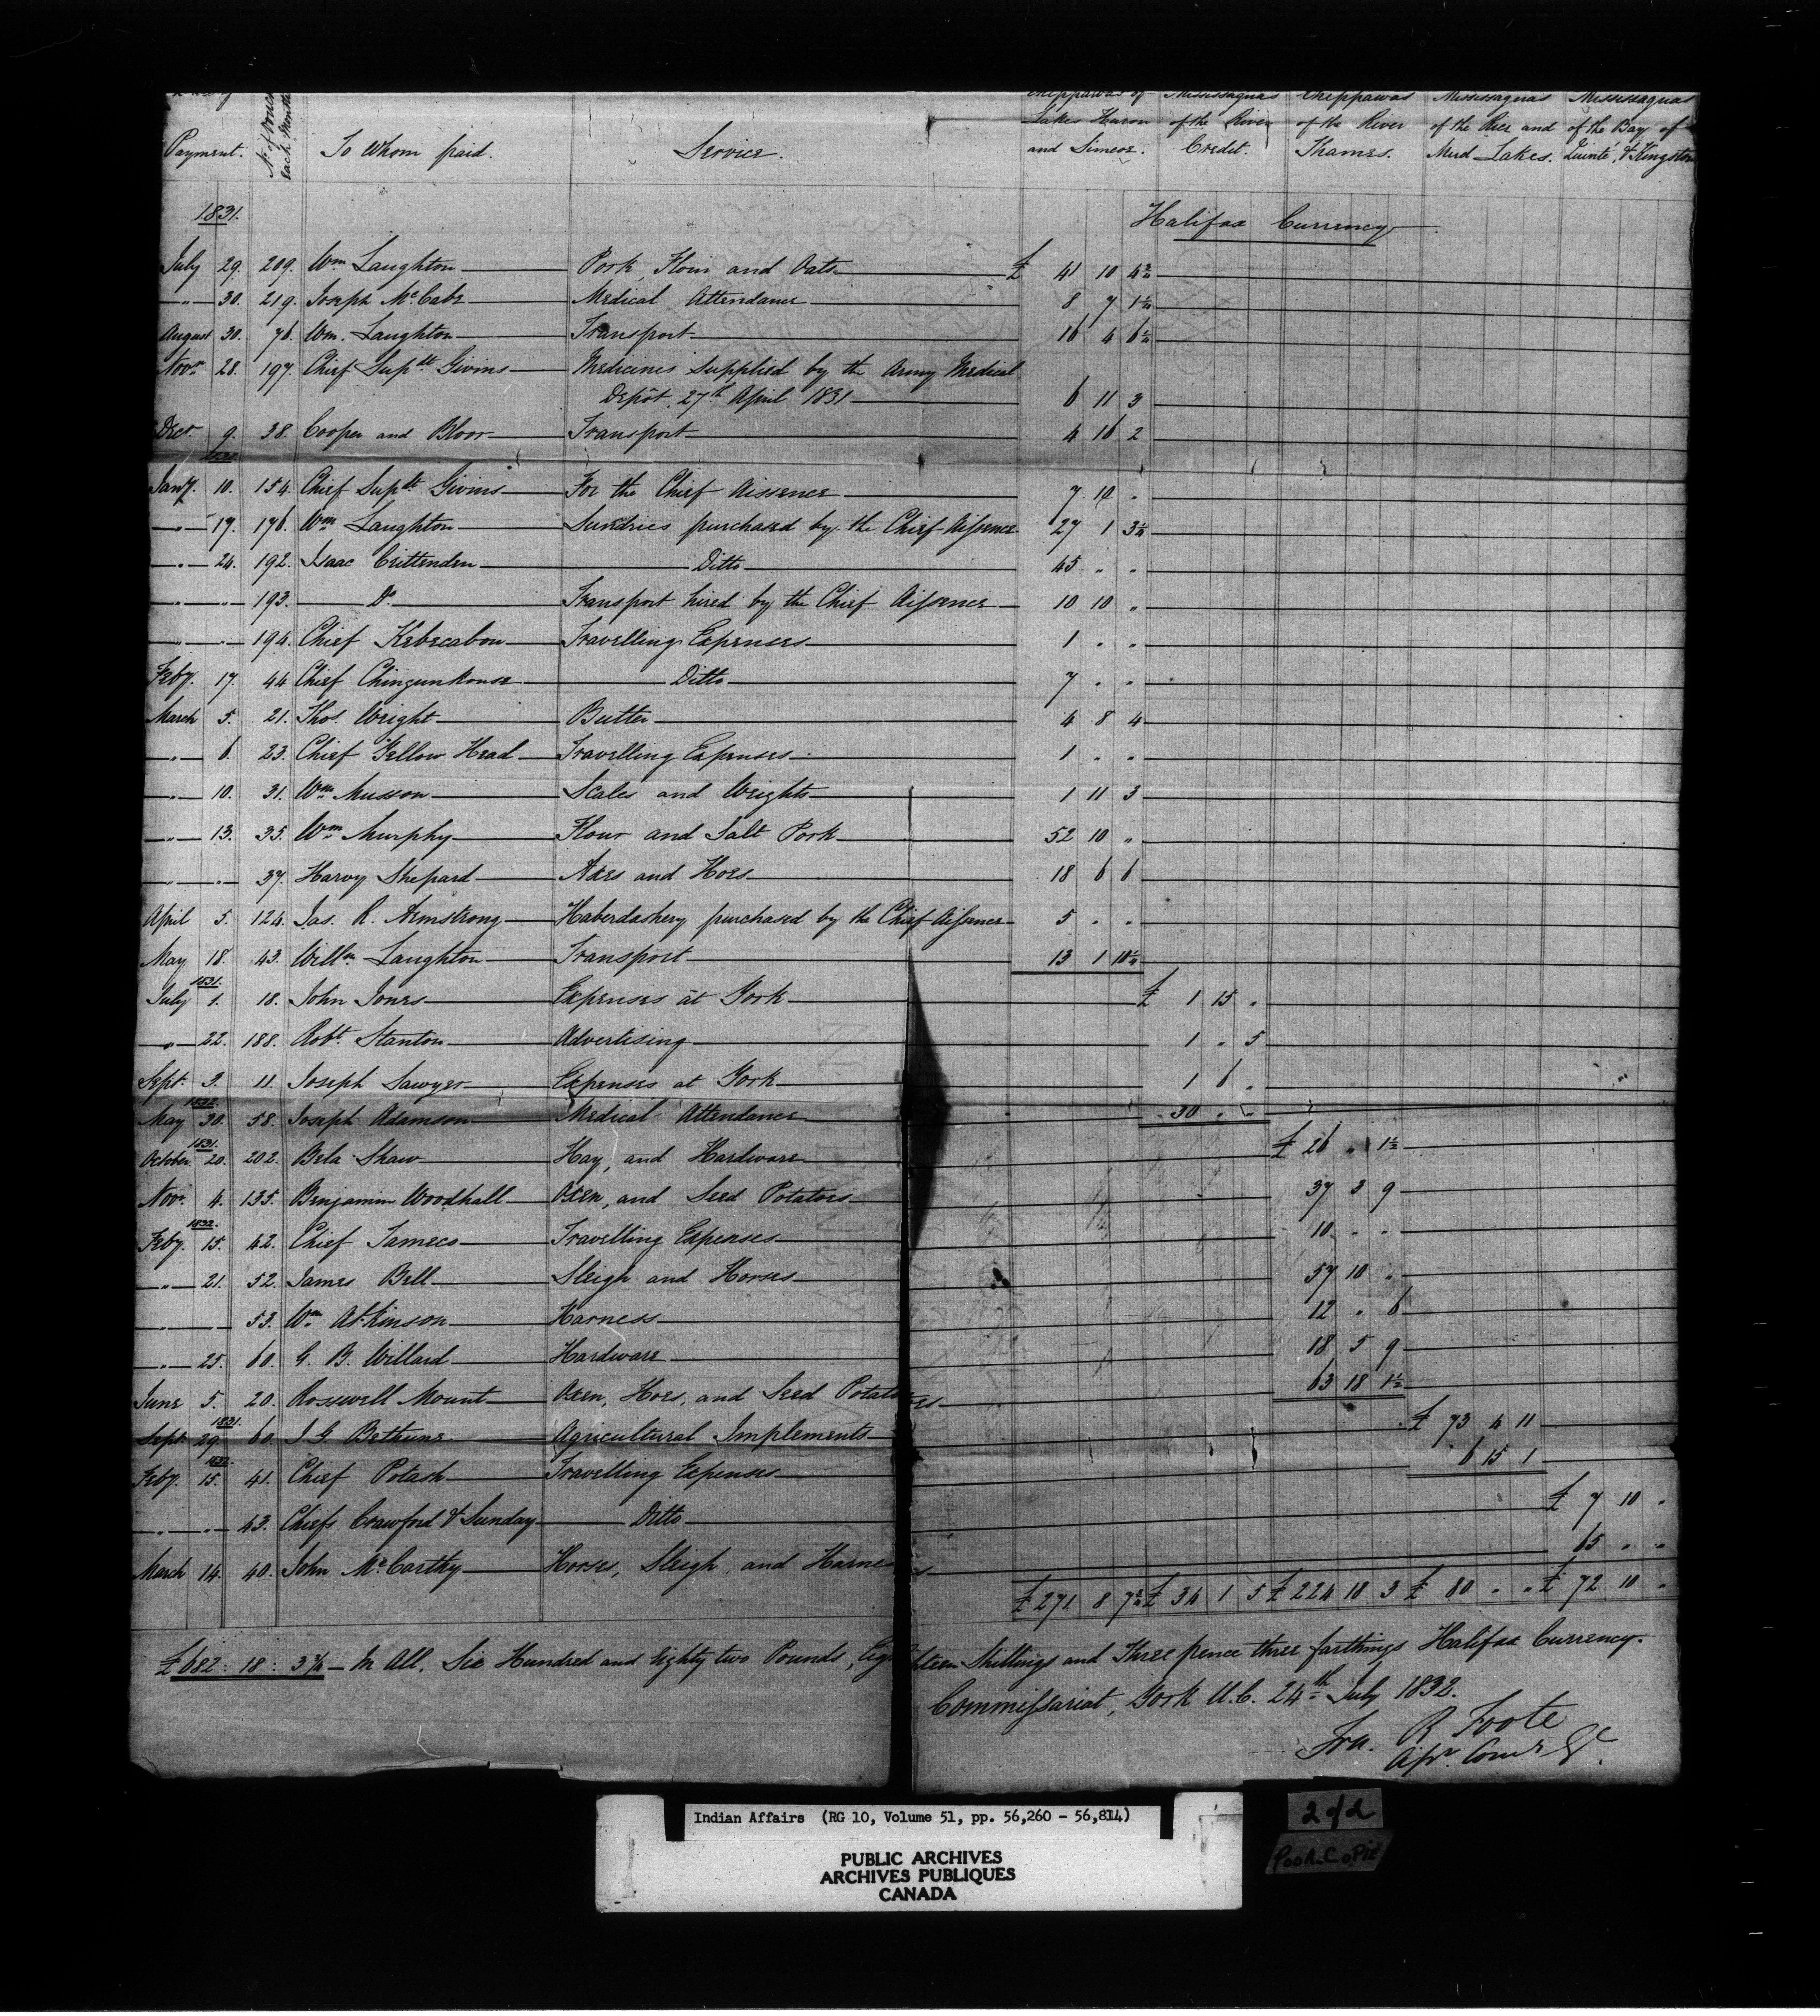 Payment. No. of Voucher each Month To Whom paid. Service. Chippawas of Lakes Huron and Simcoe. Mississaguas of the River Credit. Chippawas of the River Thames. Mississaguas of the Rice and Mud Lakes. Mississaguas of the Bay of Quinté, & Kingston
1831. Halifax Currency
July 29. 209. Wm Laughton Pork, Flour and Oats £ 41 10 4¾
" 30. 219. Joseph McCabe Medical Attendance 8 7 1½
August 30. 76. Wm. Laughton Transport 16 4 6½
Novr 28. 197. Chief Supdt Givins Medicines supplied by the Army Medical
Depôt, 27th April 1831 6 11 3
Decr 9. 38. Cooper and Bloor Transport 4 16 2
1832
Jany. 10. 154. Chief Supdt Givins For the Chief Aissence 7 10 "
" 17. 176. Wm Laughton Sundries purchased by the Chief Aissence 27 1 3½
" 24. 192. Isaac Crittenden Ditto 45 " "
" " 193. Do Transport hired by the Chief Aissence 10 10 "
" " 194. Chief Kebecabon Travelling Expenses 1 " "
Feby. 17. 44. Chief Chingunkouse Ditto 7 " "
March 5. 21. Thos. Wright Butter 4 8 4
" 6. 23. Chief Yellow Head Travelling Expenses 1 " "
" 10. 31. Wm Musson Scales and Weights 1 11 3
" 13. 35. Wm Murphy Flour and Salt Pork 52 10 "
" " 37. Harvy Shepard Axes and Hoes 18 6 6
April 5. 124. Jas. R. Armstrong Haberdashery purchased by the Chief Aissence 5 " "
May 18. 43. Willm Laughton Transport 13 1 10½
1831.
July 1. 18. John Jones Expenses at York £ 1 15 "
" 22. 188. Robt Stanton Advertising 1 " 5
Sept. 3. 11. Joseph Sawyer Expenses at York 1 6 "
1832.
May 30. 58. Joseph Adamson Medical Attendance 30 " "
1831.
October 20. 202. Bela Shaw Hay, and Hardware £ 26 " 1½
Novr. 4. 135. Benjamin Woodhall Oxen, and Seed Potatoes 37 3 9
1832.
Feby. 15. 42. Chief Tameco Travelling Expenses 10 " "
" 21. 52. James Bell Sleigh and Horses 57 10 "
" " 53. Wm Atkinson Harness 12 " 6
" 25. 60. G. B. Willard Hardware 18 5 9
June 5. 20. Rosswell Mount Oxen, Hoes, and Seed Potatoes 63 18 1½
1831.
Sept. 29. 60. J. G. Bethune Agricultural Implements £ 73 4 11
1832.
Feby. 15. 41. Chief Potash Travelling Expenses 6 15 1
" " 43. Chiefs Crawford & Sunday Ditto £ 7 10 "
March 14. 40. John McCarthy Horses, Sleigh, and Harness 65 " "
£ 271 8 7¾ £ 34 1 5 £ 224 18 3 £ 80 " " £ 72 10 "
£682 : 18 : 3¾ – In All, Six Hundred and Eighty two Pounds, Eighteen Shillings and Three pence three farthings Halifax Currency.
Commissariat, York U.C. 24th July 1832.
Fra. R Foote
Asst. Comr Gl.
Indian Affairs (RG 10, Volume 51, pp. 56,260 - 56,814)
PUBLIC ARCHIVES
ARCHIVES PUBLIQUES
CANADA
2 of 2
POOR COPIE